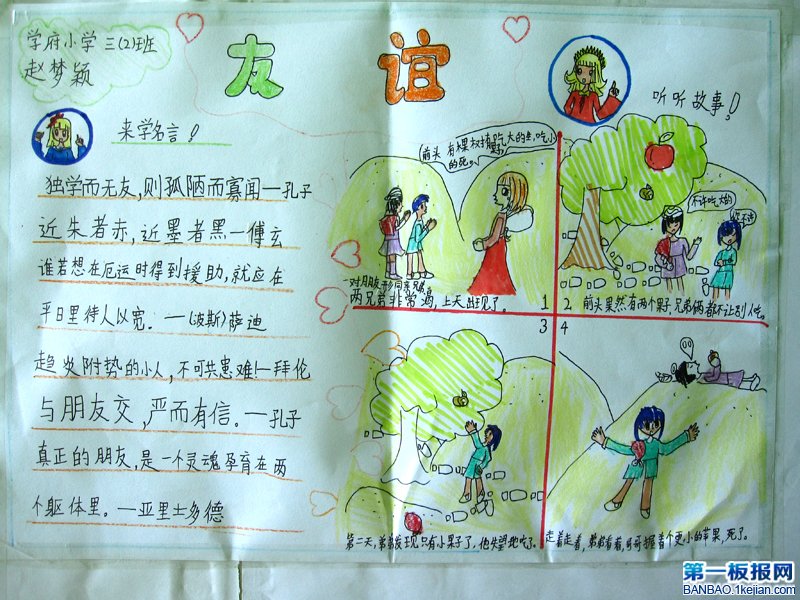 学府小学 三(2)班
赵梦颖
友 谊
来学名言!
独学而无友,则孤陋而寡闻—孔子
近朱者赤,近墨者黑—傅玄
谁若想在厄运时得到援助,就应在
平日里待人以宽.—(波斯)萨迪
趋炎附势的小人,不可共患难!—拜伦
与朋友交,严而有信.—孔子
真正的朋友,是一个灵魂孕育在两
个躯体里。—亚里士多德
听听故事!
两兄弟非常渴,上天出现了。
1
不许吃大的
2 前头果然有两个果子,兄弟俩都不让别人吃。
3
第二天,弟弟发现只有小果子了,他失望地吃了。
4
走着走着,弟弟看着哥哥握着个更小的苹果,死了。
第一板报网
BANBAO.1kejian.com